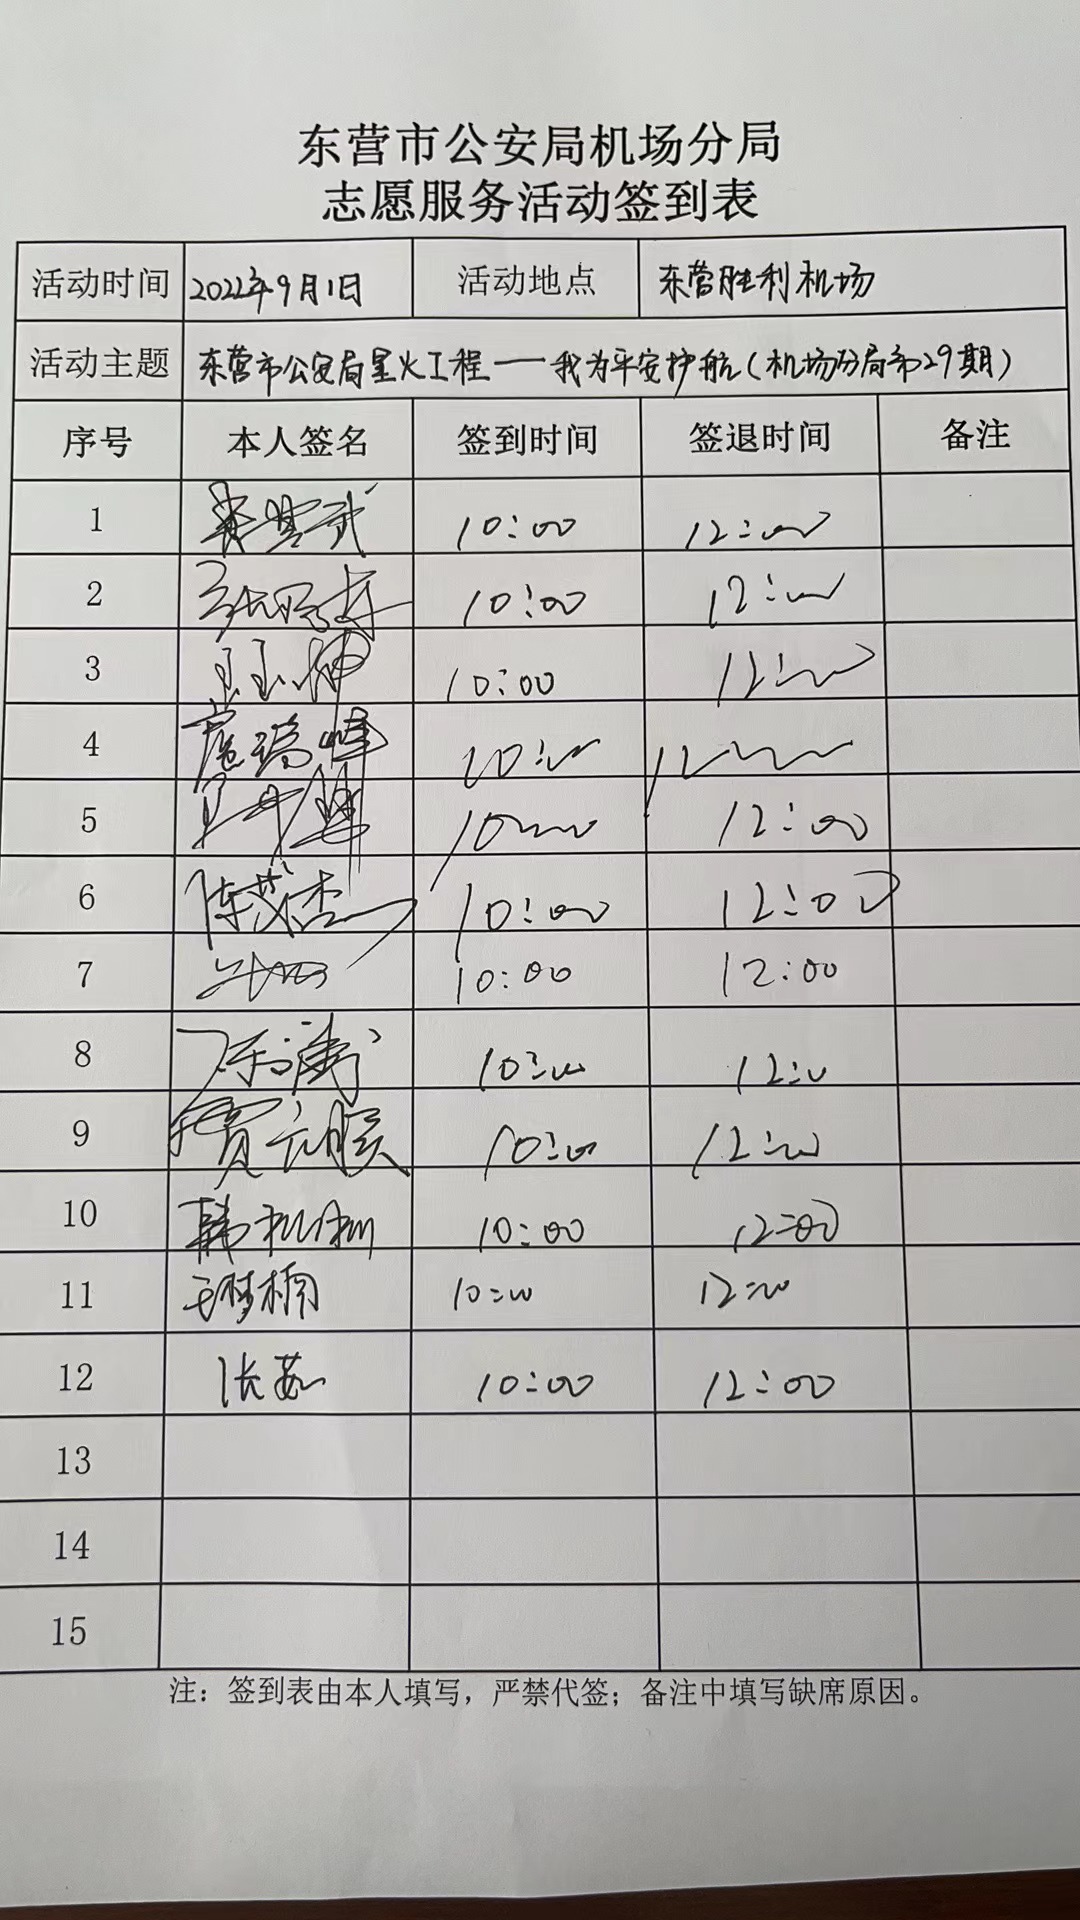 东营市公安局机场分局
志愿服务活动签到表
活动时间 2022年9月1日 活动地点 东营胜利机场
活动主题 东营市公安局星火工程——我为平安护航(机场分局第29期)
序号 本人签名 签到时间 签退时间 备注
1 10:00 12:00
2 10:00 12:00
3 10:00 12:00
4 庞瑞峰 10:00 12:00
5 10:00 12:00
6 陈茂杰 10:00 12:00
7 10:00 12:00
8 陈涛 10:00 12:00
9 贾立朕 10:00 12:00
10 10:00 12:00
11 王梦楠 10:00 12:00
12 张茹 10:00 12:00
13
14
15
注：签到表由本人填写，严禁代签；备注中填写缺席原因。